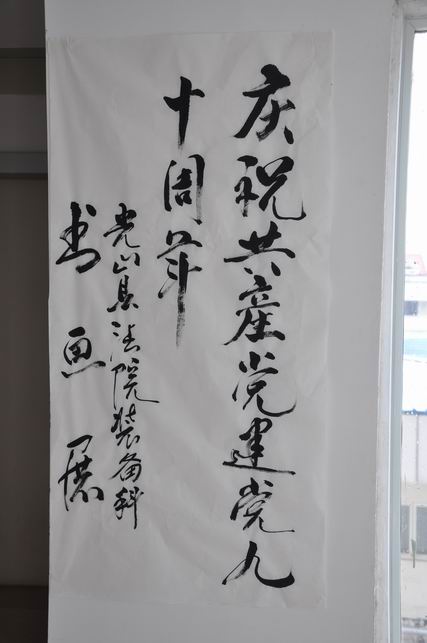 庆祝共产党建党九
十周年
光山县法院装备科
书画展